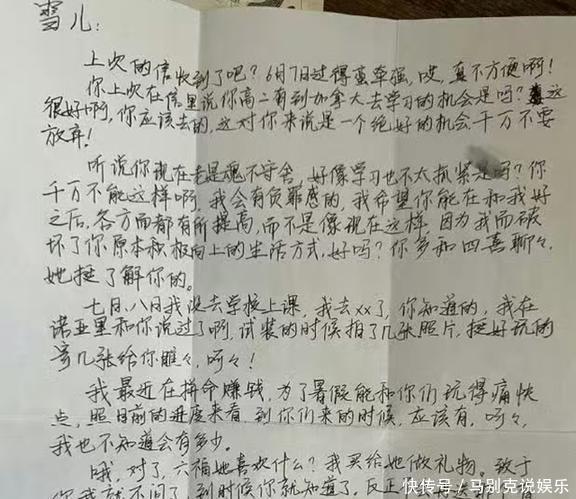 雪儿：
上次的信收到了吧？6月7日过得蛮牵强，哎，真不方便啊！
你上次在信里说你高二有到加拿大去学习的机会是吗？这
很好啊，你应该去的，这对你来说是一个绝好的机会，千万不要
放弃！
听说你现在老是魂不守舍，好像学习也不太抓紧是吗？你
千万不能这样啊，我会有负罪感的，我希望你能在和我好
之后，各方面都有所提高，而不是像现在这样，因为我而破
坏了你原本积极向上的生活方式，好吗？你多和四喜聊々，
她挺了解你的。
七日、八日我没去学校上课，我去xx了，你知道的，我在
诺亚里和你说过了啊，试装的时候拍了几张照片，挺好玩的
寄几张给你瞧々，呵々！
我最近在拼命赚钱，为了暑假能和你们玩得痛快
点，照目前的进度来看，到你们来的时候，应该有，呵々，
我也不知道会有多少。
哦，对了，六福她喜欢什么？我买给她做礼物。致于
你我就不问了，到时候你就知道了，反正
快传号/马别克说娱乐